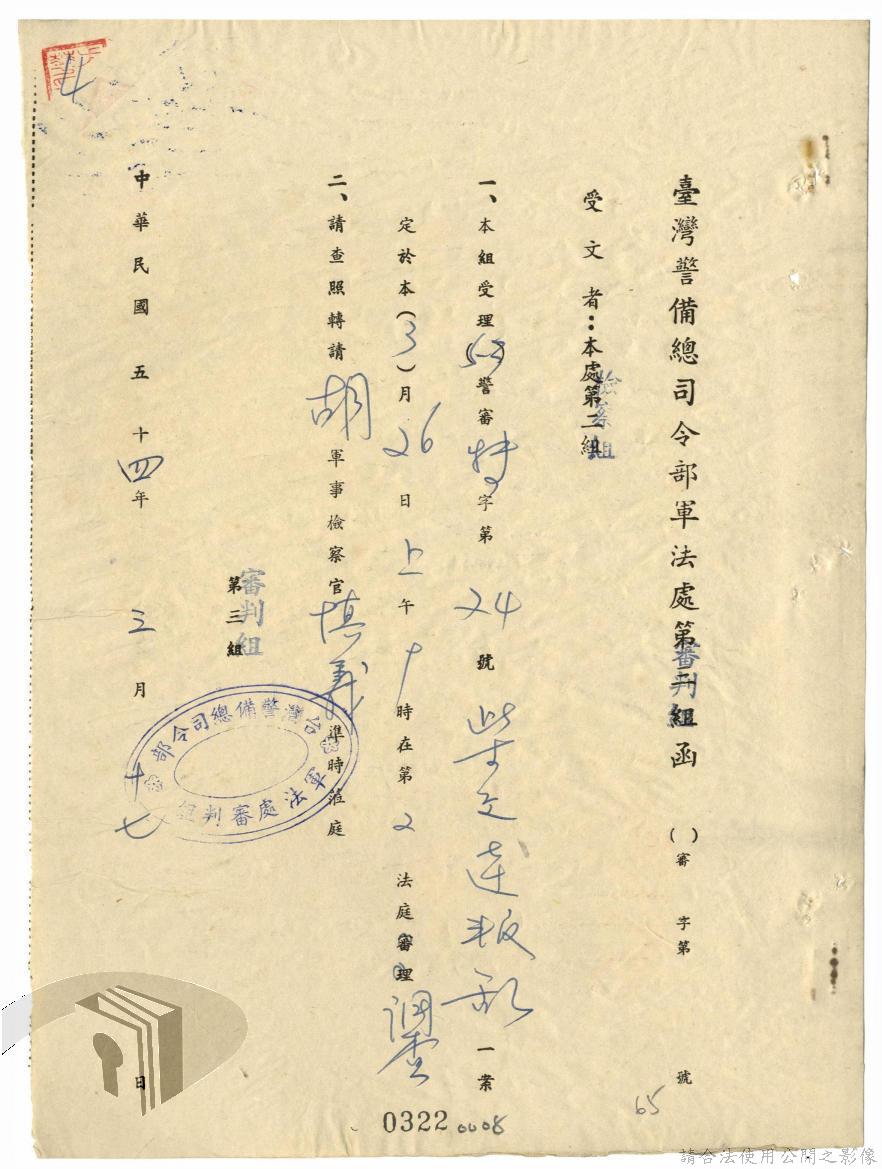 臺灣警備總司令部軍法處第三組函
審判組
( )審 字第 號
受文者：本處第二組
檢察組
一、本組受理(53)警審特字第24號柴文達叛亂一案
定於本(3)月26日上午十時在第2法庭審理
調查
二、請查照轉請胡軍事檢察官慎義準時蒞庭
第三組
審判組
台灣警備總司令部
軍法處審判組
中華民國五十四年三月十七日
65
0322
0008
請合法使用公開之影像